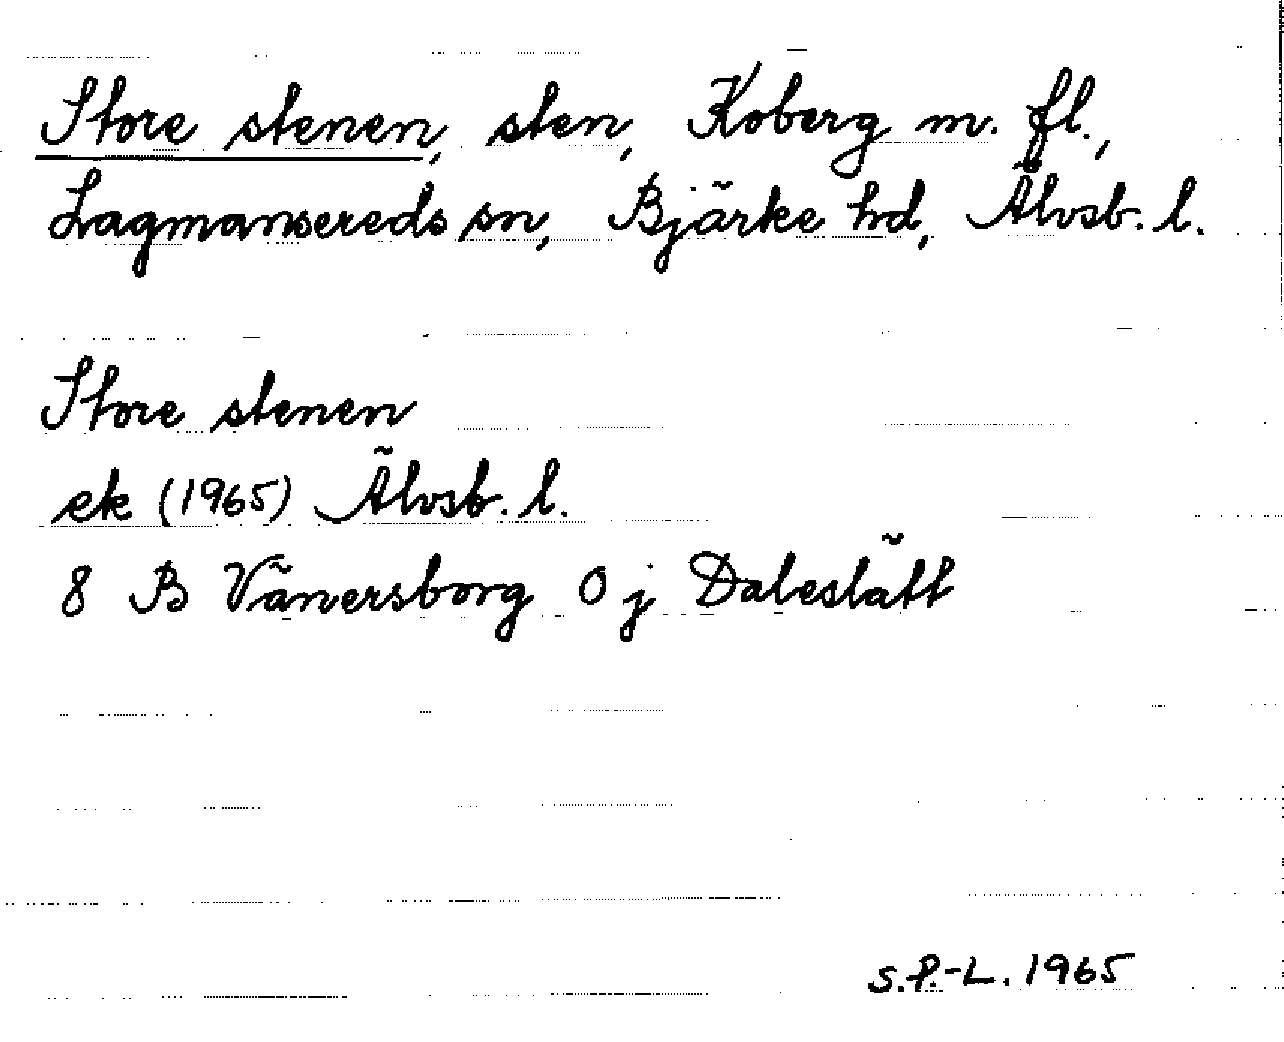 Store stenen, sten, Koberg m. fl.,
Lagmansereds sn, Bjärke hd, Älvsb. l.
Store stenen
ek (1965) Älvsb. l.
8 B Vänersborg 0 j Daleslätt
S.P.-L. 1965